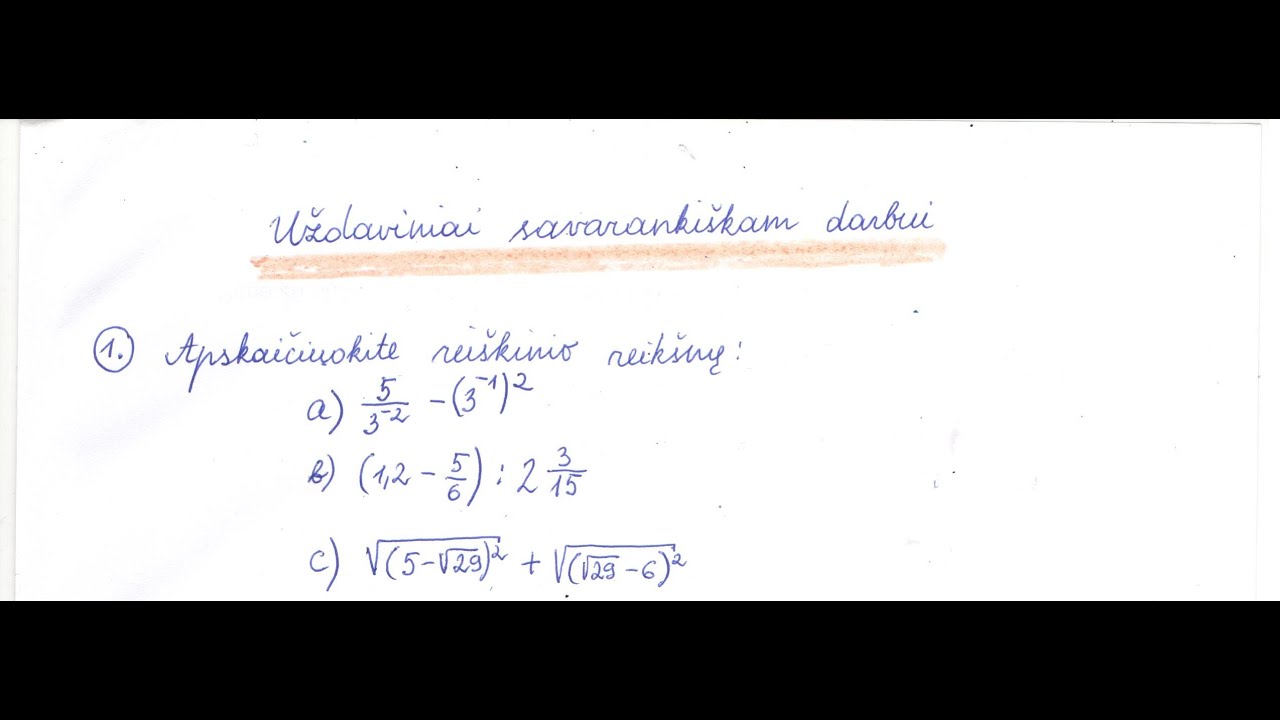 Uždaviniai savarankiškam darbui
1. Apskaičiuokite reiškinio reikšmę:
a) 5/3⁻² - (3⁻¹)²
b) (1,2 - 5/6) : 2 3/15
c) √(5-√29)² + √(√29 - 6)²